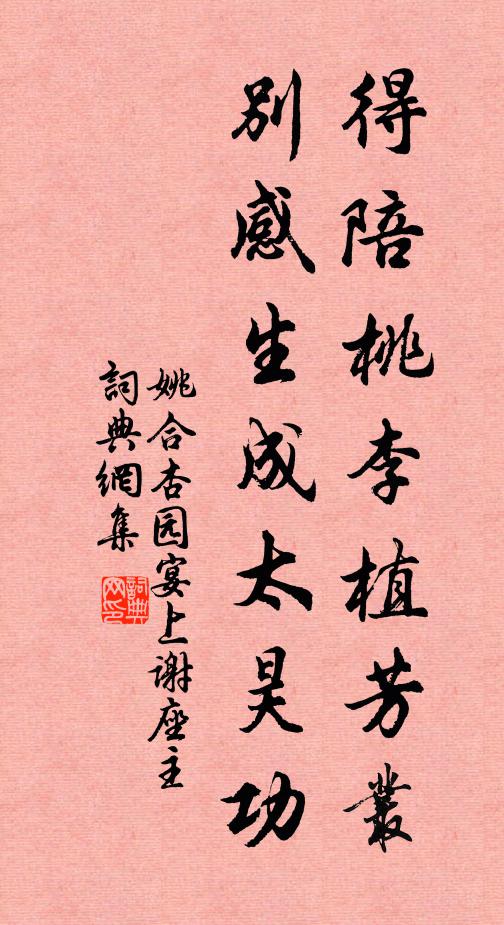 得陪桃李植芳叢
別感生成太昊功
姚合杏园宴上谢座主
詞典網集
詞典網印